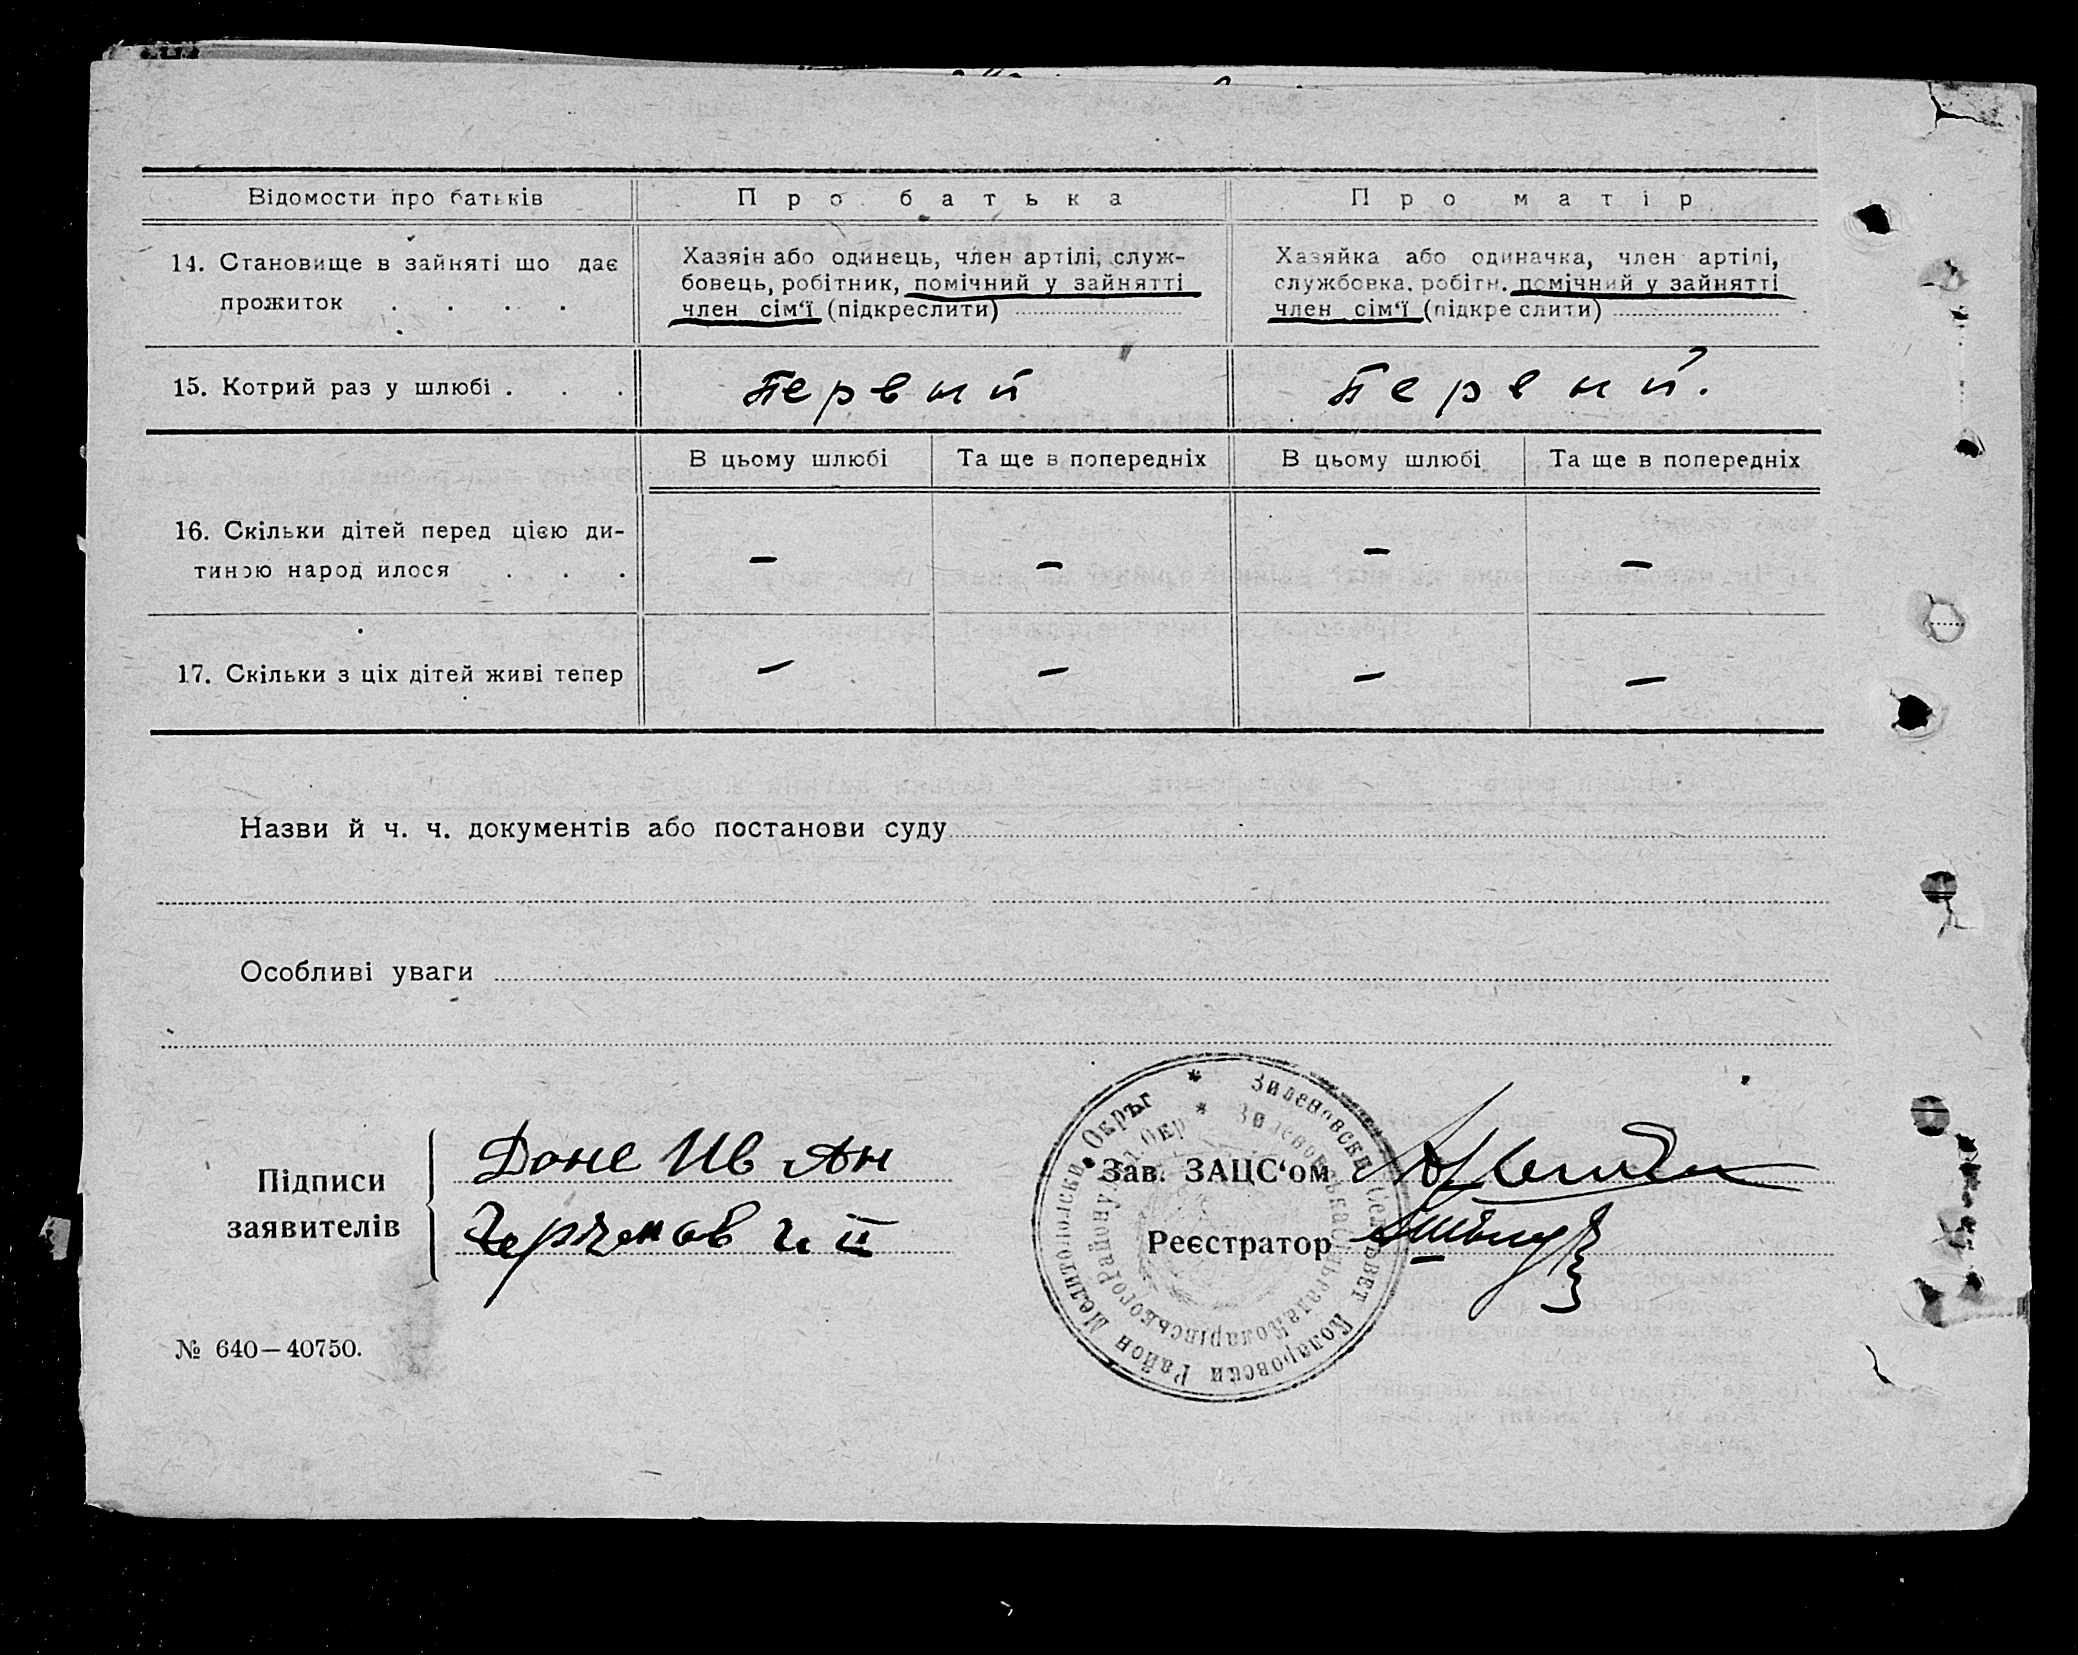 Відомости про батьків
Про батька
Про матір
14. Становище в зайняті що дає
прожиток . . . .
Хазяїн або одинець, член артілі, служ-
бовець, робітник, помічний у зайнятті
член сім‘ї (підкреслити)
Хазяйка або одиначка, член артілі,
службовка, робітн. помічний у зайнятті
член сім‘ї (підкреслити)
15. Котрий раз у шлюбі . . .
Первый
Первый.
В цьому шлюбі
Та ще в попередніх
В цьому шлюбі
Та ще в попередніх
16. Скільки дітей перед цією ди-
тиною народилося . . .
–
–
–
–
17. Скільки з ціх дітей живі тепер
–
–
–
–
Назви й ч. ч. документів або постанови суду
Особливі уваги
Підписи
заявителів
Доне Ив Ан
Зав. ЗАЦС‘ом
Реєстратор
Мелитополски Окръг * Зиленовски Селсъвет Коларовски Район
№ 640—40750.